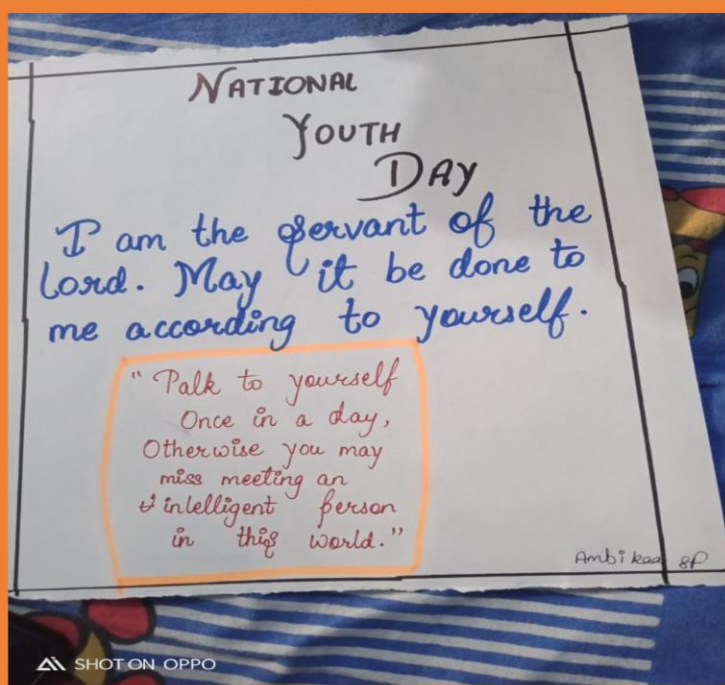 NATIONAL
YOUTH
DAY
I am the servant of the
Lord. May it be done to
me according to yourself.
"Palk to yourself
Once in a day,
Otherwise you may
miss meeting an
intelligent person
in this world."
Ambikaa 8P
SHOT ON OPPO